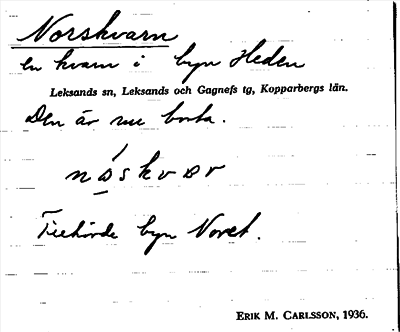 Norskvarn
en kvarn i byn Heden
Leksands sn, Leksands och Gagnefs tg, Kopparbergs län.
Den är nu borta.
Tillhörde byn Noret.
ERIK M. CARLSSON, 1936.